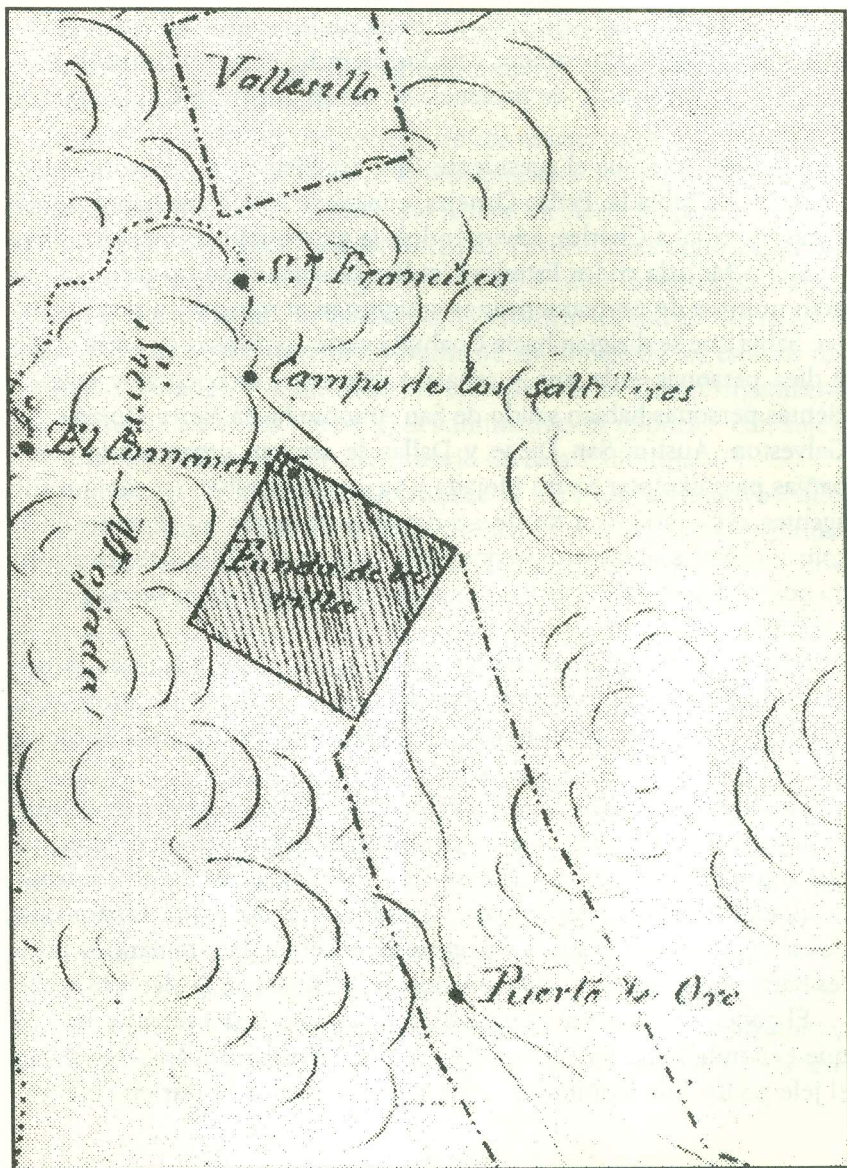 Vallesillo
S.n Francisco
Campo de los Saltilleros
El Comanchito
Sierra Mojada
Fundo de la
villa
Puerto de Oro